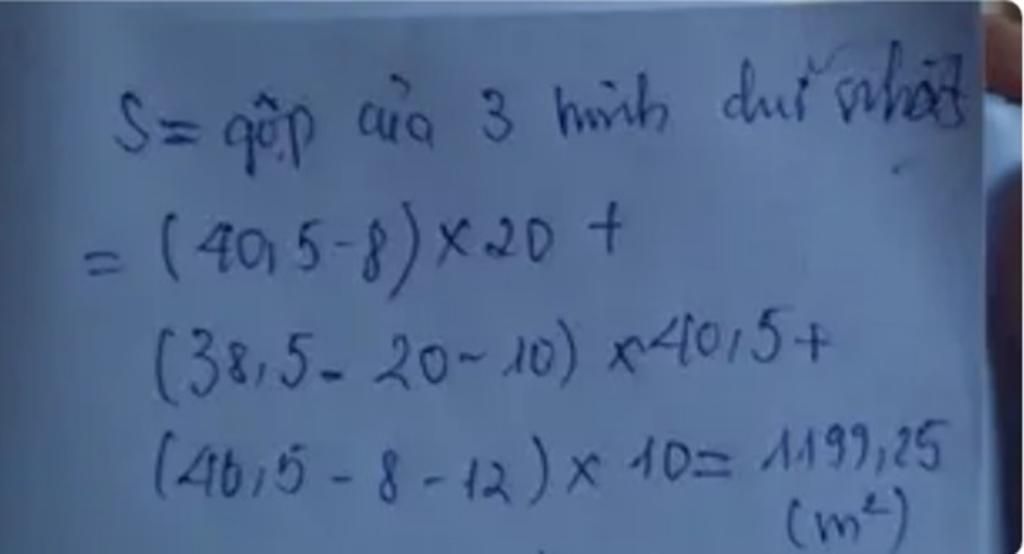 S = gộp của 3 hình chữ nhật
= (40,5 - 8) × 20 +
(38,5 - 20 - 10) × 40,5 +
(40,5 - 8 - 12) × 10 = 1199,25
(m²)